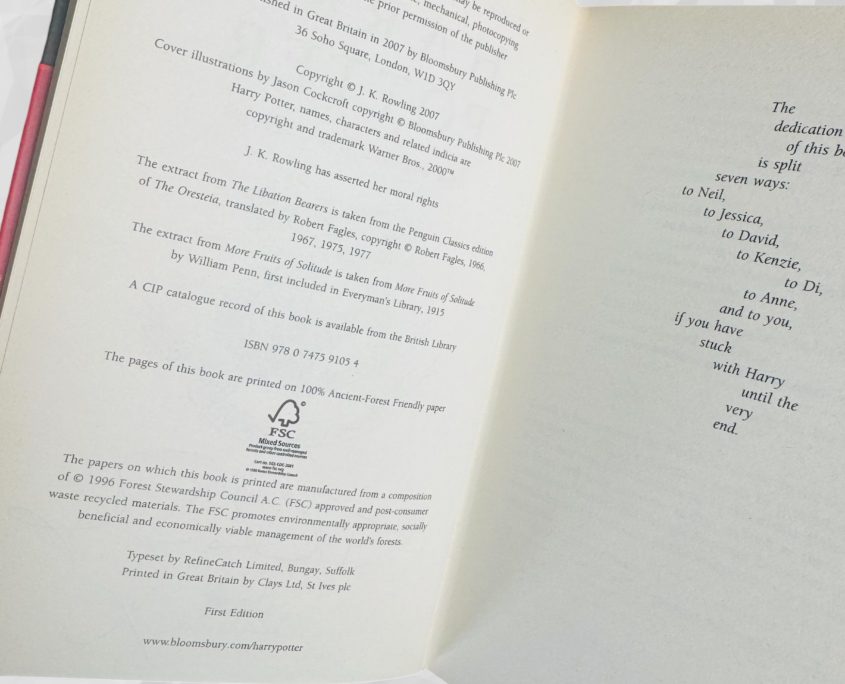 may be reproduced or
mechanical, photocopying
prior permission of the publisher
in Great Britain in 2007 by Bloomsbury Publishing Plc
36 Soho Square, London, W1D 3QY
Copyright © J. K. Rowling 2007
Cover illustrations by Jason Cockcroft copyright © Bloomsbury Publishing Plc 2007
Harry Potter, names, characters and related indicia are
copyright and trademark Warner Bros., 2000™
J. K. Rowling has asserted her moral rights
The extract from The Libation Bearers is taken from the Penguin Classics edition
of The Oresteia, translated by Robert Fagles, copyright © Robert Fagles, 1966,
1967, 1975, 1977
The extract from More Fruits of Solitude is taken from More Fruits of Solitude
by William Penn, first included in Everyman's Library, 1915
A CIP catalogue record of this book is available from the British Library
ISBN 978 0 7475 9105 4
The pages of this book are printed on 100% Ancient-Forest Friendly paper
FSC
Mixed Sources
Product group from well-managed
forests and other controlled sources
www.fsc.org
© 1996 Forest Stewardship Council
The papers on which this book is printed are manufactured from a composition
of © 1996 Forest Stewardship Council A.C. (FSC) approved and post-consumer
waste recycled materials. The FSC promotes environmentally appropriate, socially
beneficial and economically viable management of the world's forests.
Typeset by RefineCatch Limited, Bungay, Suffolk
Printed in Great Britain by Clays Ltd, St Ives plc
First Edition
www.bloomsbury.com/harrypotter
The
dedication
of this
is split
seven ways:
to Neil,
to Jessica,
to David,
to Kenzie,
to Di,
to Anne,
and to you,
if you have
stuck
with Harry
until the
very
end.